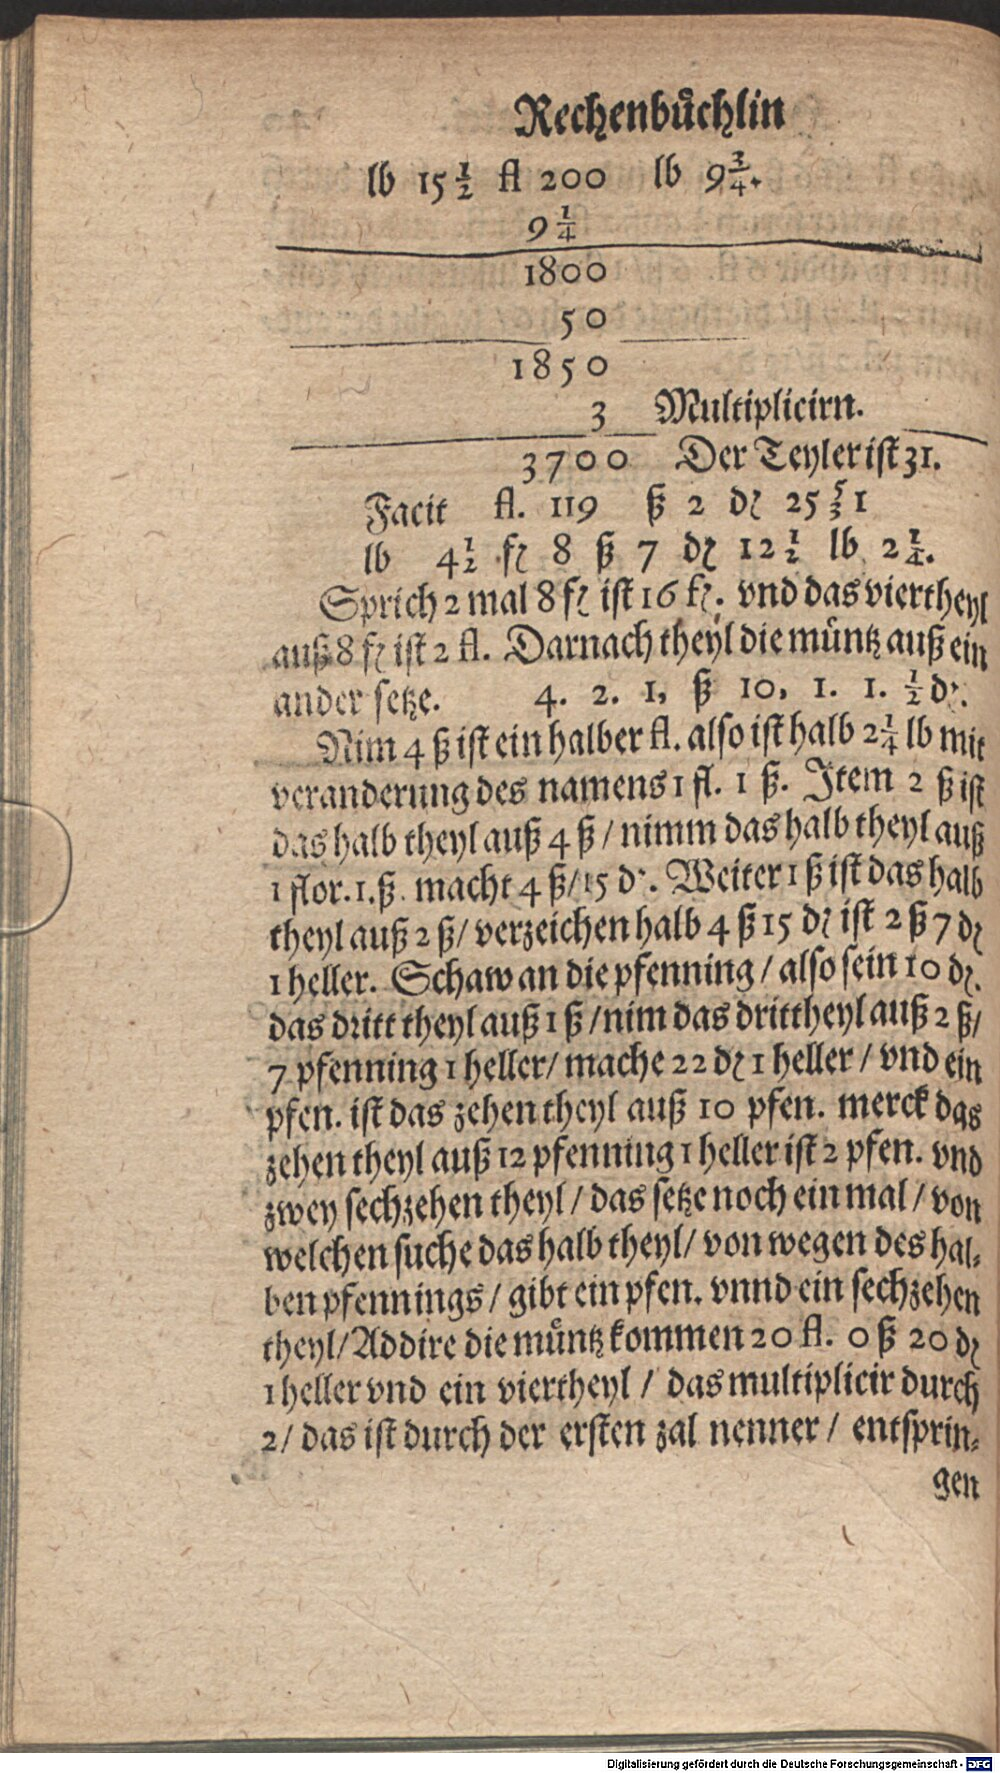 Rechenbuͤchlin
lb 15 1/2 fl 200 lb 9 3/4.
9 1/4
1800
50
1850
3 Multiplicirn.
3700 Der Teyler ist 31.
Facit fl. 119 ß 2 dʒ 25 5/3 1
lb 4 1/2 fʒ 8 ß 7 dʒ 12 1/2 lb 2 1/4.
Sprich 2 mal 8 fʒ ist 16 fʒ. vnd das viertheyl
auß 8 fʒ ist 2 fl. Darnach theyl die muͤntz auß ein
ander setze. 4. 2. 1, ß 10, 1. 1. 1/2 dʒ.
Nim 4 ß ist ein halber fl. also ist halb 2 1/4 lb mit
veranderung des namens 1 fl. 1 ß. Jtem 2 ß ist
das halb theyl auß 4 ß / nimm das halb theyl auß
1 flor. 1. ß. macht 4 ß / 15 dʒ. Weiter 1 ß ist das halb
theyl auß 2 ß / verzeichen halb 4 ß 15 dʒ ist 2 ß 7 dʒ
1 heller. Schaw an die pfenning / also sein 10 dʒ.
das dritt theyl auß 1 ß / nim das drittheyl auß 2 ß /
7 pfenning 1 heller / mache 22 dʒ 1 heller / vnd ein
pfen. ist das zehen theyl auß 10 pfen. merck das
zehen theyl auß 12 pfenning 1 heller ist 2 pfen. vnd
zwey sechzehen theyl / das setze noch ein mal / von
welchen suche das halb theyl / von wegen des hal⸗
ben pfennings / gibt ein pfen. vnnd ein sechzehen
theyl / Addire die muͤntz kommen 20 fl. 0 ß 20 dʒ
1 heller vnd ein viertheyl / das multiplicir durch
2 / das ist durch der ersten zal nenner / entsprin⸗
gen
Digitalisierung gefördert durch die Deutsche Forschungsgemeinschaft - DFG